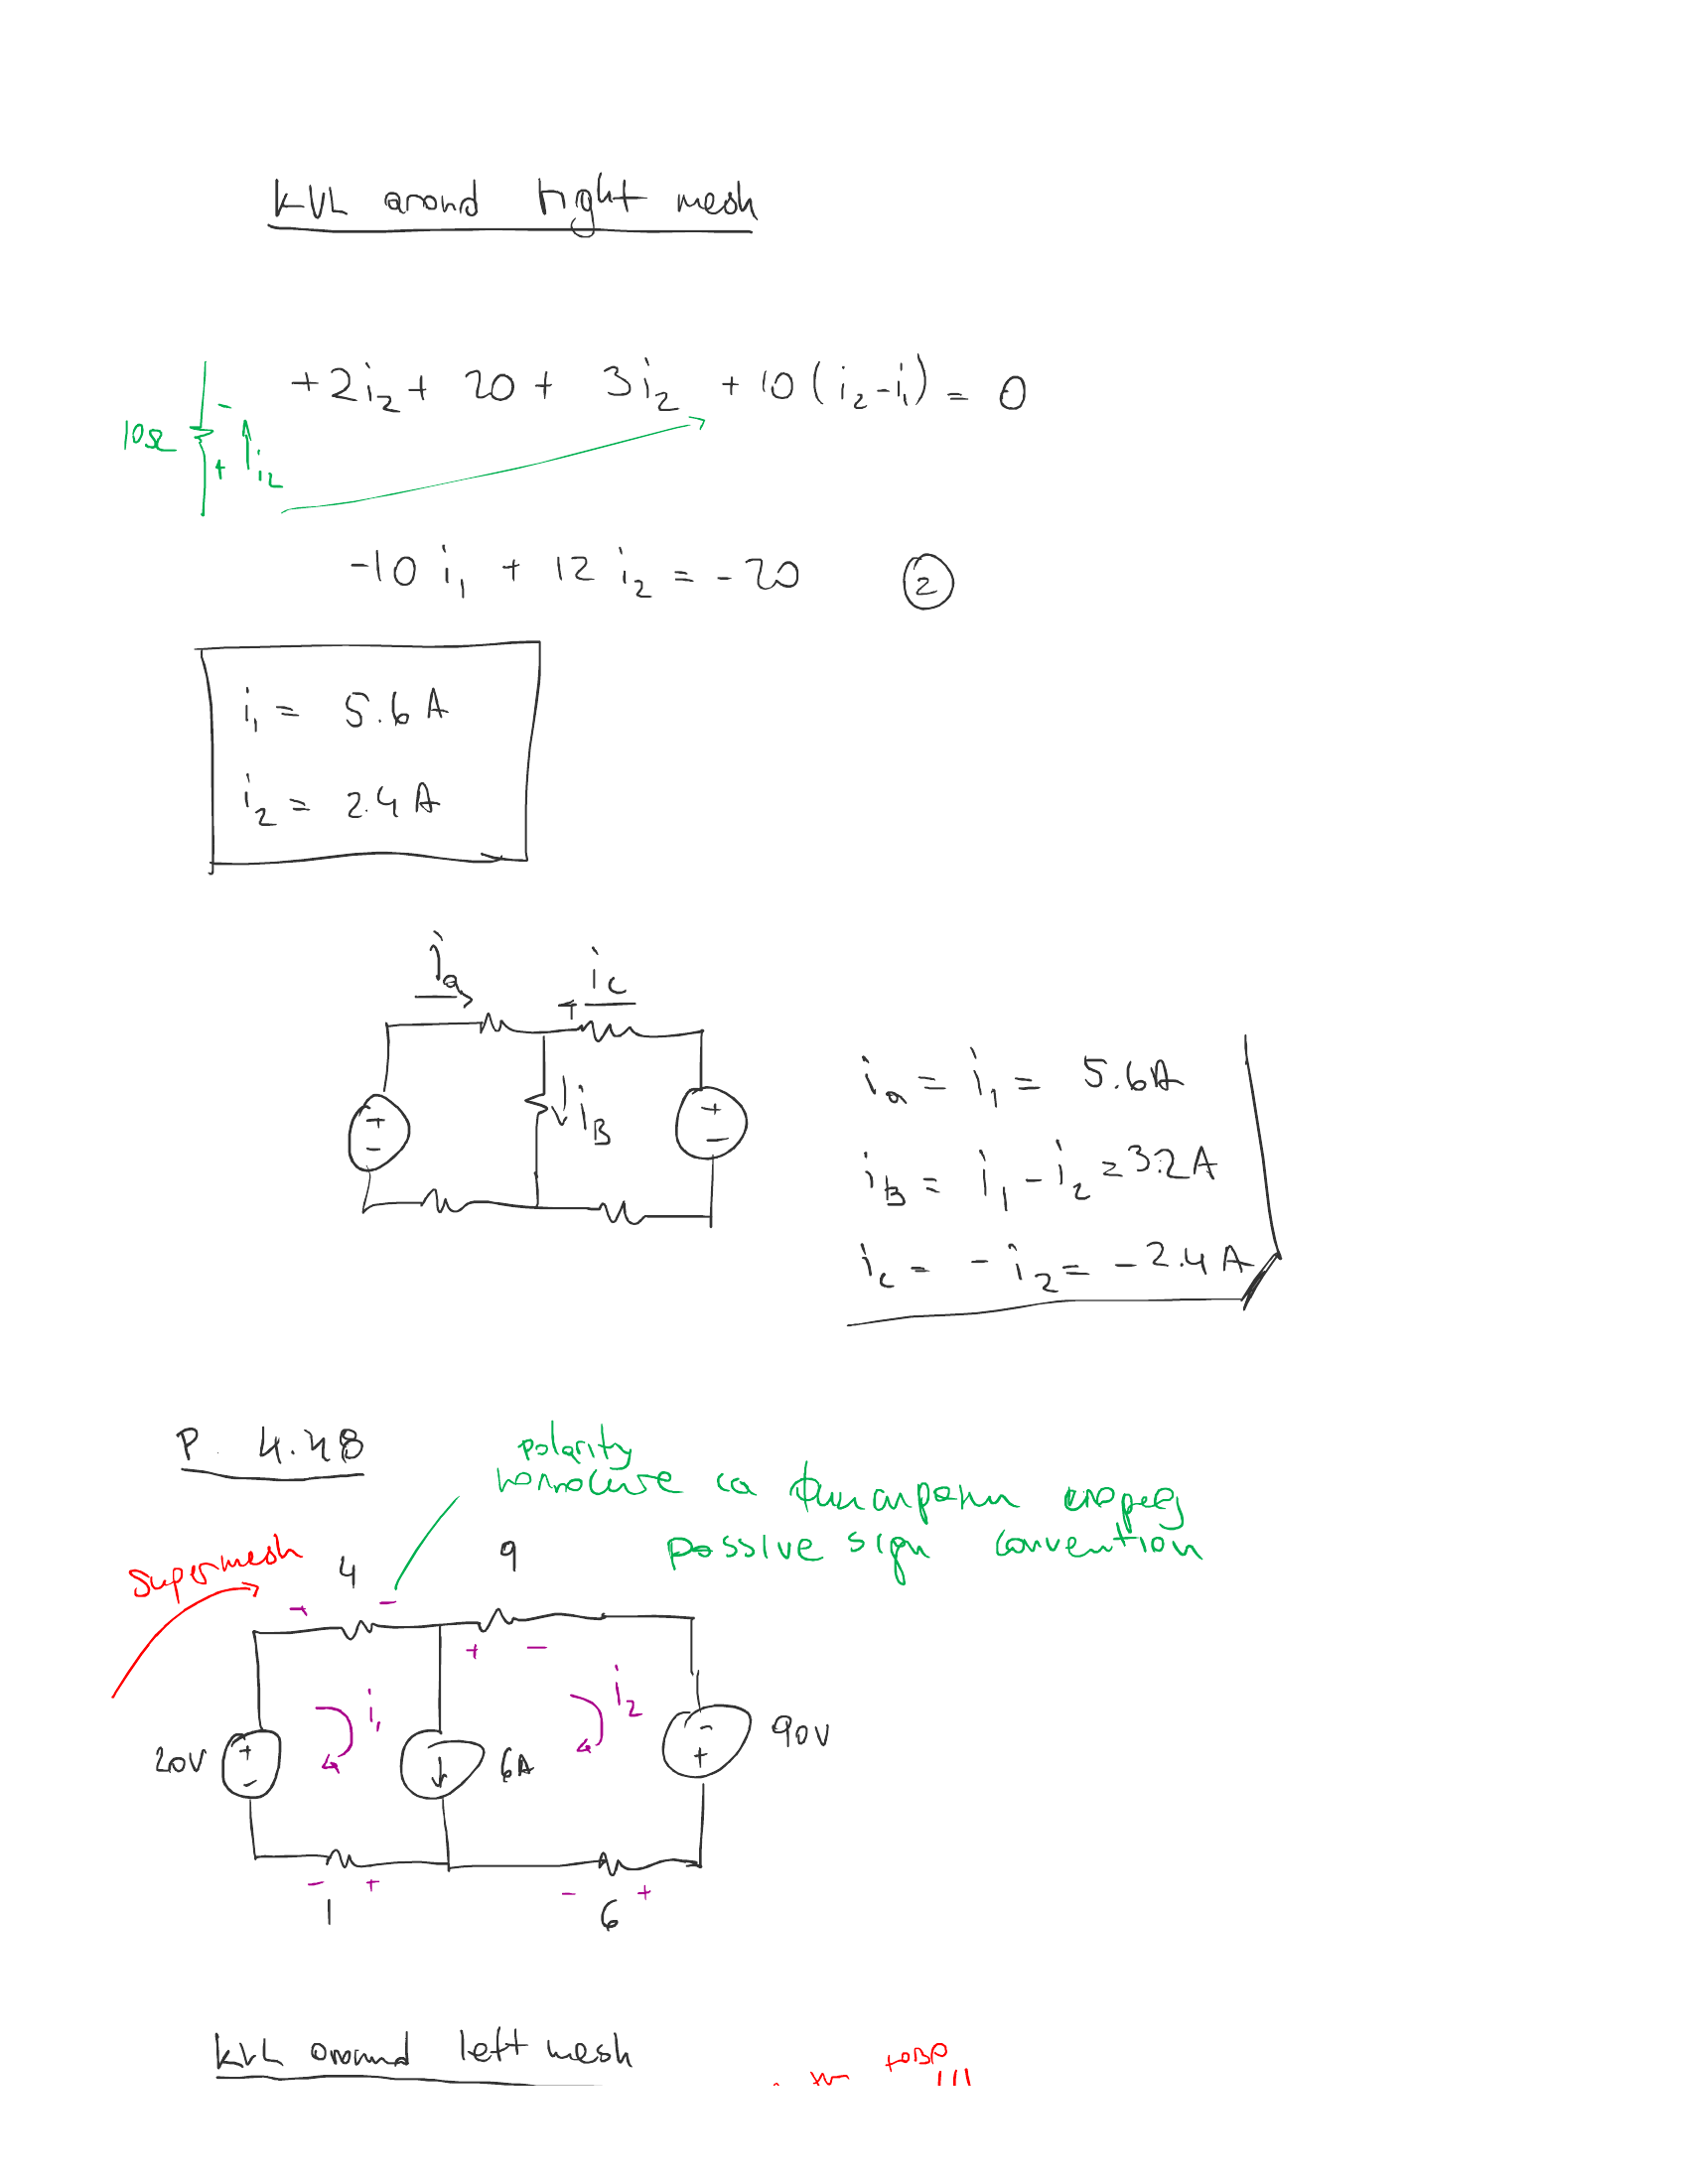 KVL arond right mesh
+2i₂ + 20 + 3i₂ + 10(i₂-i₁) = 0
10Ω
-
+
i₂
-10i₁ + 12i₂ = -20 ②
i₁ = 5.6A
i₂ = 2.4A
ia
ic
iB
+
-
+
-
ia = i₁ = 5.6A
iB = i₁ - i₂ = 3.2A
ic = - i₂ = -2.4A
P. 4.48
polarity
са фиксирани според
passive sign convention
supermesh
4
9
+ -
+ -
i₁
i₂
20V
+
-
6A
-
+
90V
- +
- +
1
6
KVL around left mesh
!!!